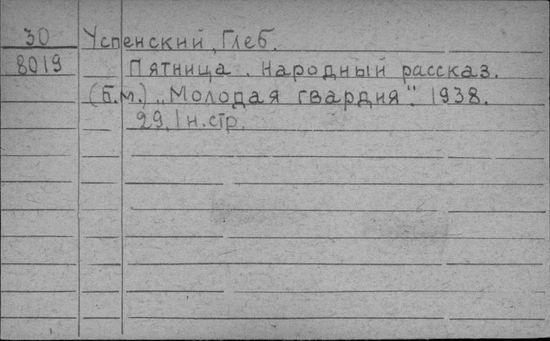 30 Успенский, Глеб.
8019 Пятница. Народный рассказ.
(Б.м.) „Молодая гвардия". 1938.
29, 1 н. стр.